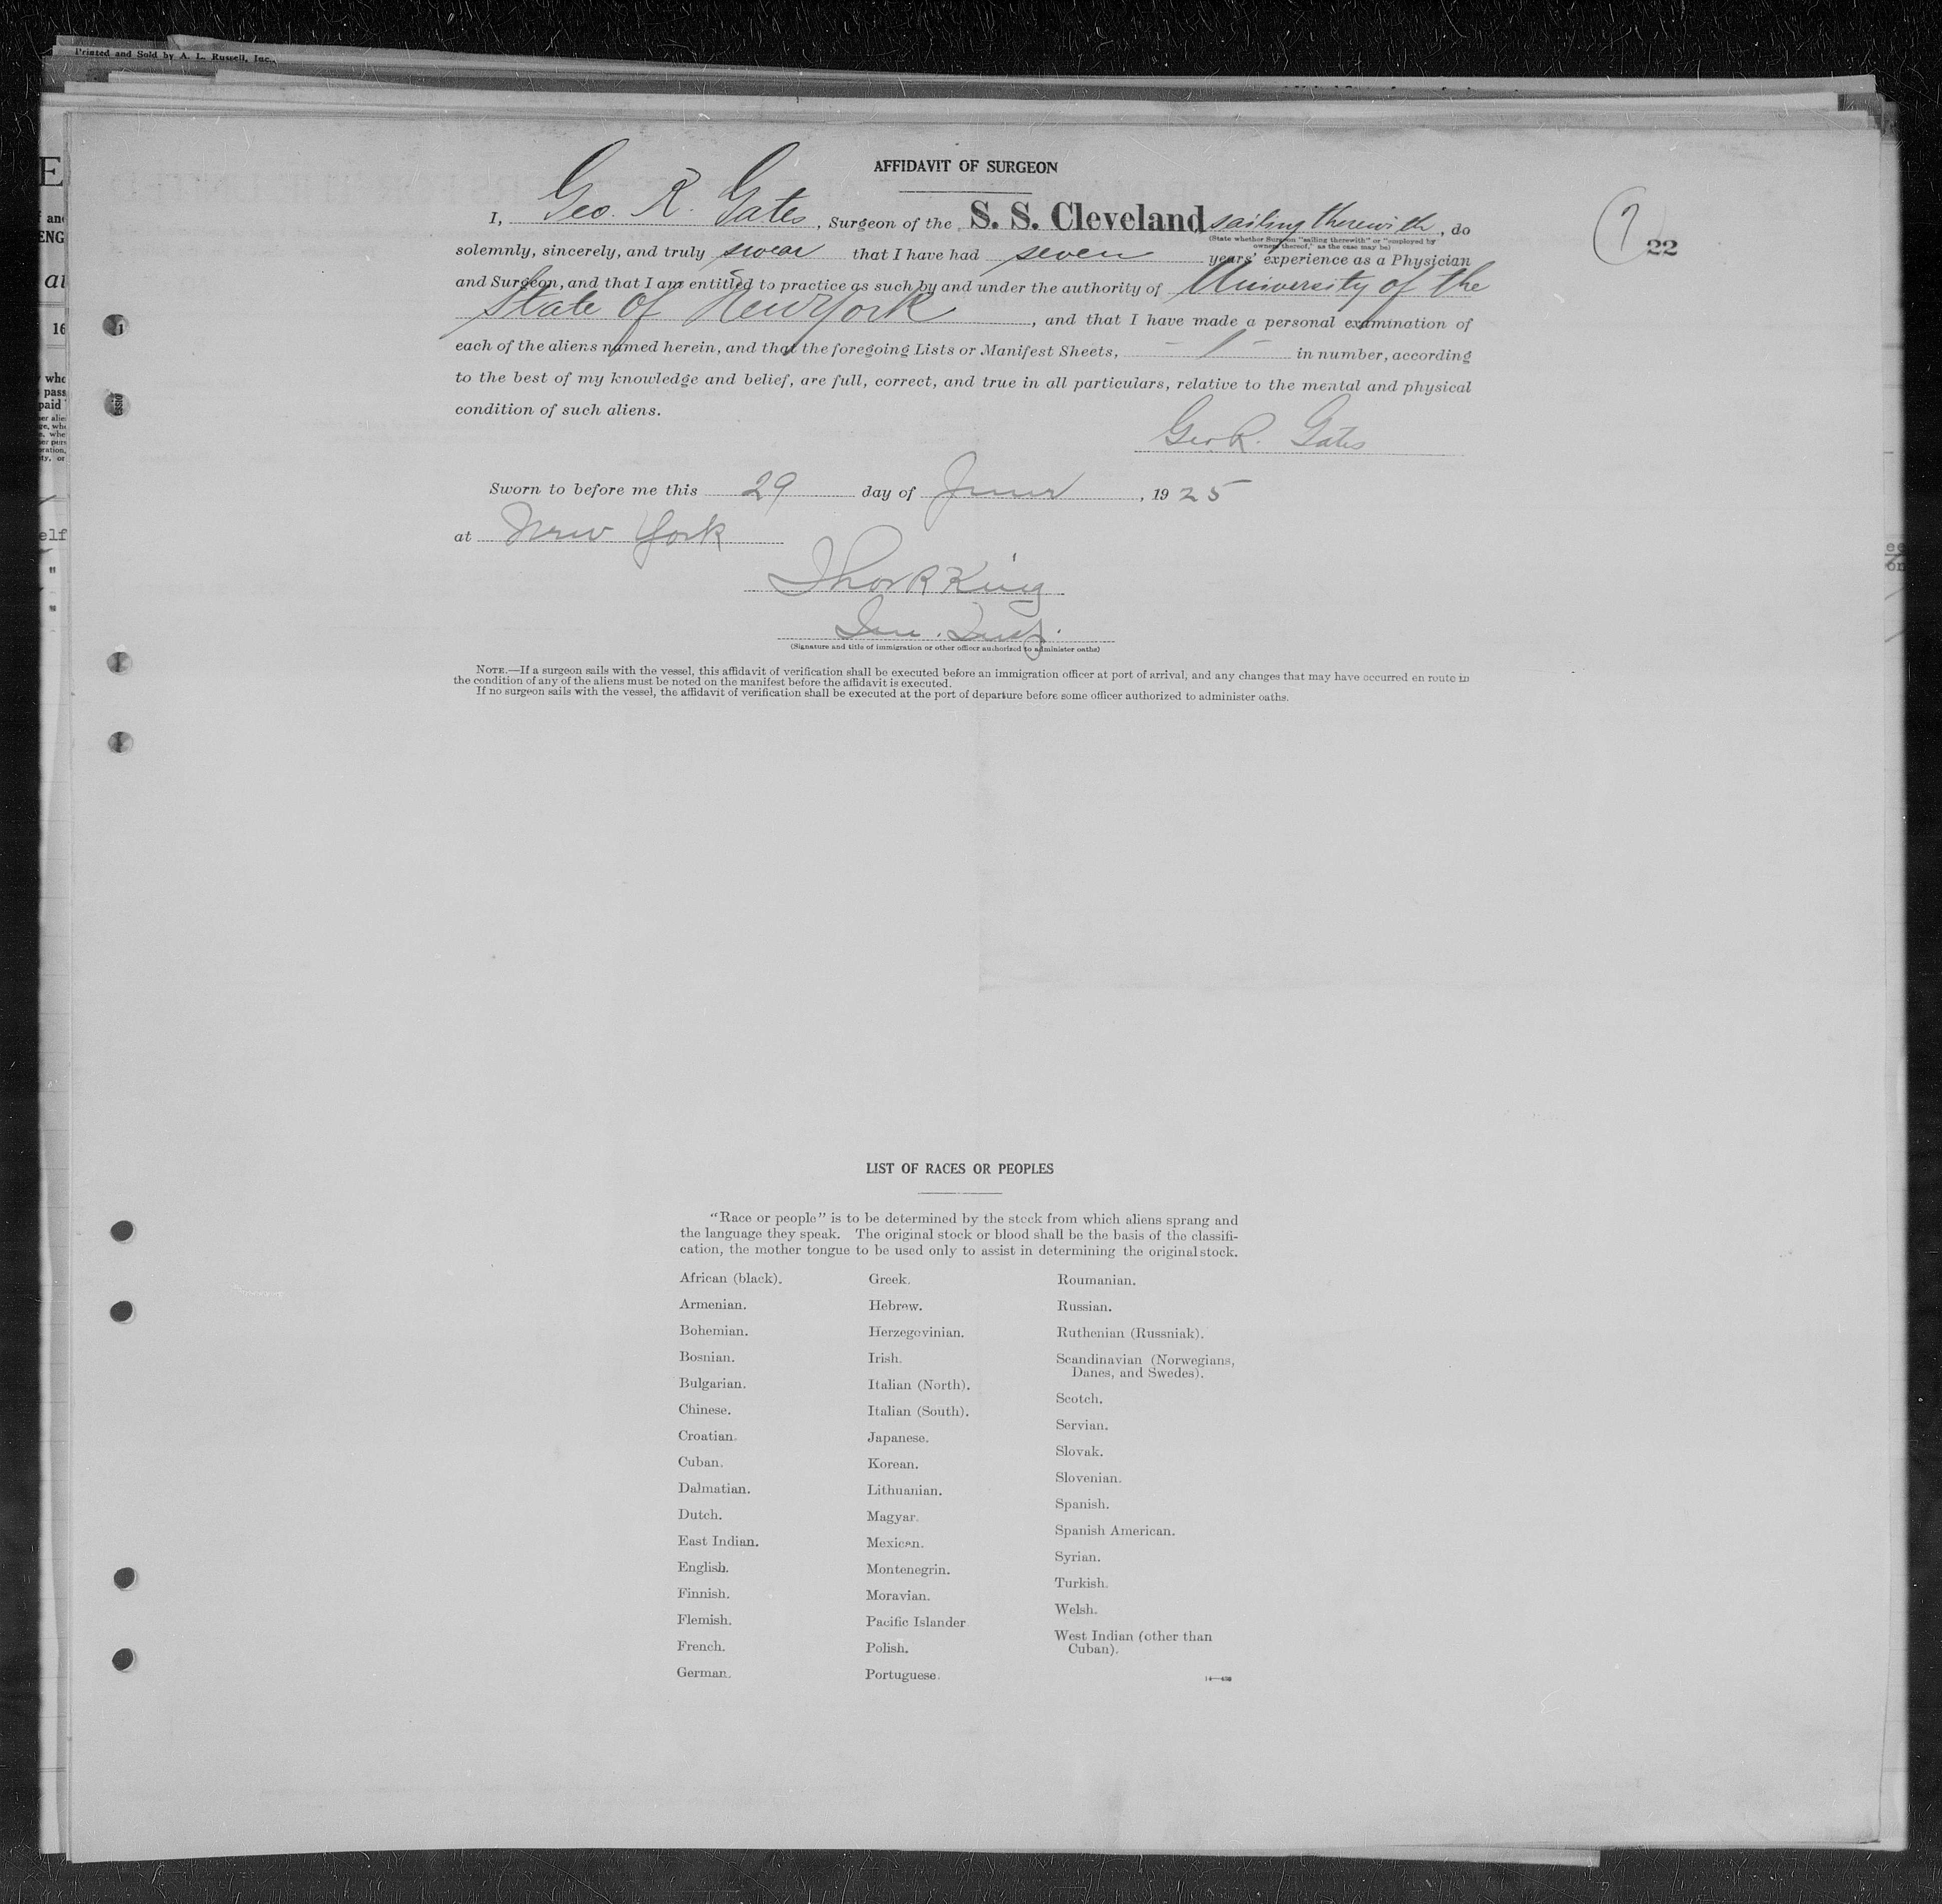 Printed and Sold by A. L. Russell, Inc.
AFFIDAVIT OF SURGEON
I, Geo. R. Gates, Surgeon of the S. S. Cleveland sailing therewith, do
(State whether Surgeon "sailing therewith" or "employed by
owners thereof," as the case may be)
22
solemnly, sincerely, and truly swear that I have had seven years' experience as a Physician
and Surgeon, and that I am entitled to practice as such by and under the authority of University of the
State of New York, and that I have made a personal examination of
each of the aliens named herein, and that the foregoing Lists or Manifest Sheets, - 1 - in number, according
to the best of my knowledge and belief, are full, correct, and true in all particulars, relative to the mental and physical
condition of such aliens.
Geo. R. Gates
Sworn to before me this 29 day of June, 1925
at New York
Thos R King
(Signature and title of immigration or other officer authorized to administer oaths)
NOTE.—If a surgeon sails with the vessel, this affidavit of verification shall be executed before an immigration officer at port of arrival, and any changes that may have occurred en route in
the condition of any of the aliens must be noted on the manifest before the affidavit is executed.
If no surgeon sails with the vessel, the affidavit of verification shall be executed at the port of departure before some officer authorized to administer oaths.
LIST OF RACES OR PEOPLES
"Race or people" is to be determined by the stock from which aliens sprang and
the language they speak. The original stock or blood shall be the basis of the classifi-
cation, the mother tongue to be used only to assist in determining the original stock.
African (black).
Armenian.
Bohemian.
Bosnian.
Bulgarian.
Chinese.
Croatian.
Cuban.
Dalmatian.
Dutch.
East Indian.
English.
Finnish.
Flemish.
French.
German.
Greek.
Hebrew.
Herzegovinian.
Irish.
Italian (North).
Italian (South).
Japanese.
Korean.
Lithuanian.
Magyar.
Mexican.
Montenegrin.
Moravian.
Pacific Islander
Polish.
Portuguese.
Roumanian.
Russian.
Ruthenian (Russniak).
Scandinavian (Norwegians,
Danes, and Swedes).
Scotch.
Servian.
Slovak.
Slovenian.
Spanish.
Spanish American.
Syrian.
Turkish.
Welsh.
West Indian (other than
Cuban).